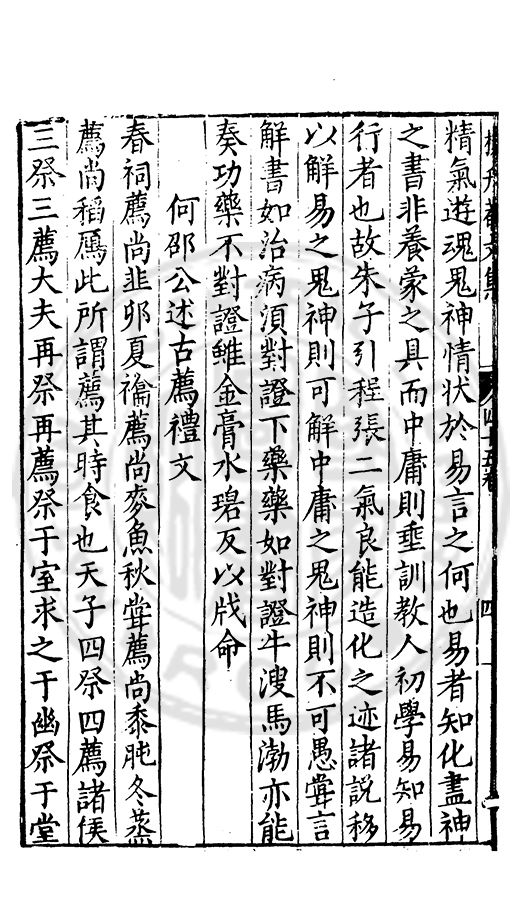 精氣遊魂鬼神情狀於易言之何也易者知化盡神
之書非養蒙之具而中庸則垂訓教人初學易知易
行者也故朱子引程張二氣良能造化之迹諸說移
以解易之鬼神則可解中庸之鬼神則不可愚甞言
解書如治病湏對證下藥藥如對證牛溲馬渤亦能
奏功藥不對證雖金膏水碧反以戕命
何邵公述古薦禮文
春祠薦尚韭卵夏禴薦尚麥魚秋甞薦尚黍肫冬蒸
薦尚稻鴈此所謂薦其時食也天子四祭四薦諸侯
三祭三薦大夫再祭再薦祭于室求之于幽祭于堂
四十五卷
四